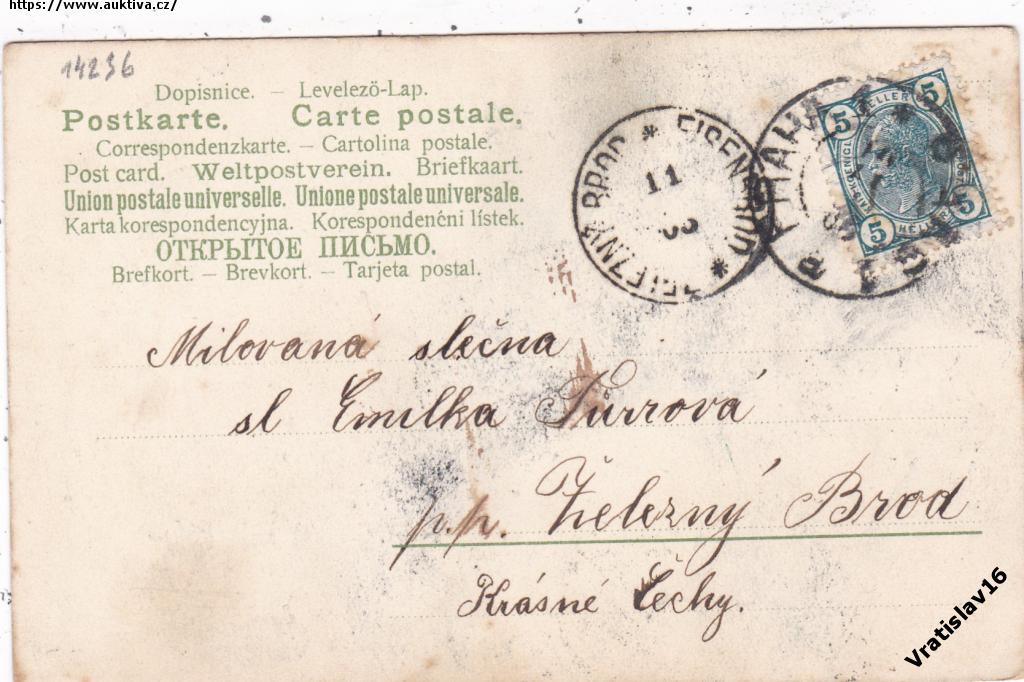 https://www.auktiva.cz/
14236
Dopisnice. – Levelezö-Lap.
Postkarte. Carte postale.
Correspondenzkarte. – Cartolina postale.
Post card. – Weltpostverein. – Briefkaart.
Union postale universelle. Unione postale universale.
Karta korespondencyjna. – Korespondenčni lístek.
ОТКРЫТОЕ ПИСЬМО.
Brefkort. – Brevkort. – Tarjeta postal.
* EISENBROD * ŽELEZNÝ BROD
11
PRAHA
5 HELLER 5
5 HELLER 5
Milovaná slečna
sl Emilka Purrová
p.p. Železný Brod
Krásné Čechy.
Vratislav16